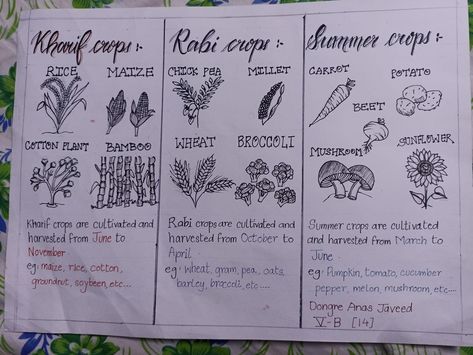 Kharif crops :-
RICE
MAIZE
COTTON PLANT
BAMBOO
Kharif crops are cultivated and
harvested from June to
November
eg: maize, rice, cotton,
groundnut, soybeen, etc...
Rabi crops :-
CHICK PEA
MILLET
WHEAT
BROCCOLI
Rabi crops are cultivated and
harvested from October to
April.
eg: wheat, gram, pea, oats,
barley, broccoli, etc....
Summer crops :-
CARROT
POTATO
BEET
MUSHROOM
SUNFLOWER
Summer crops are cultivated
and harvested from March to
June
eg: Pumpkin, tomato, cucumber
pepper, melon, mushroom, etc....
Dongre Anas Javeed
V-B [14]